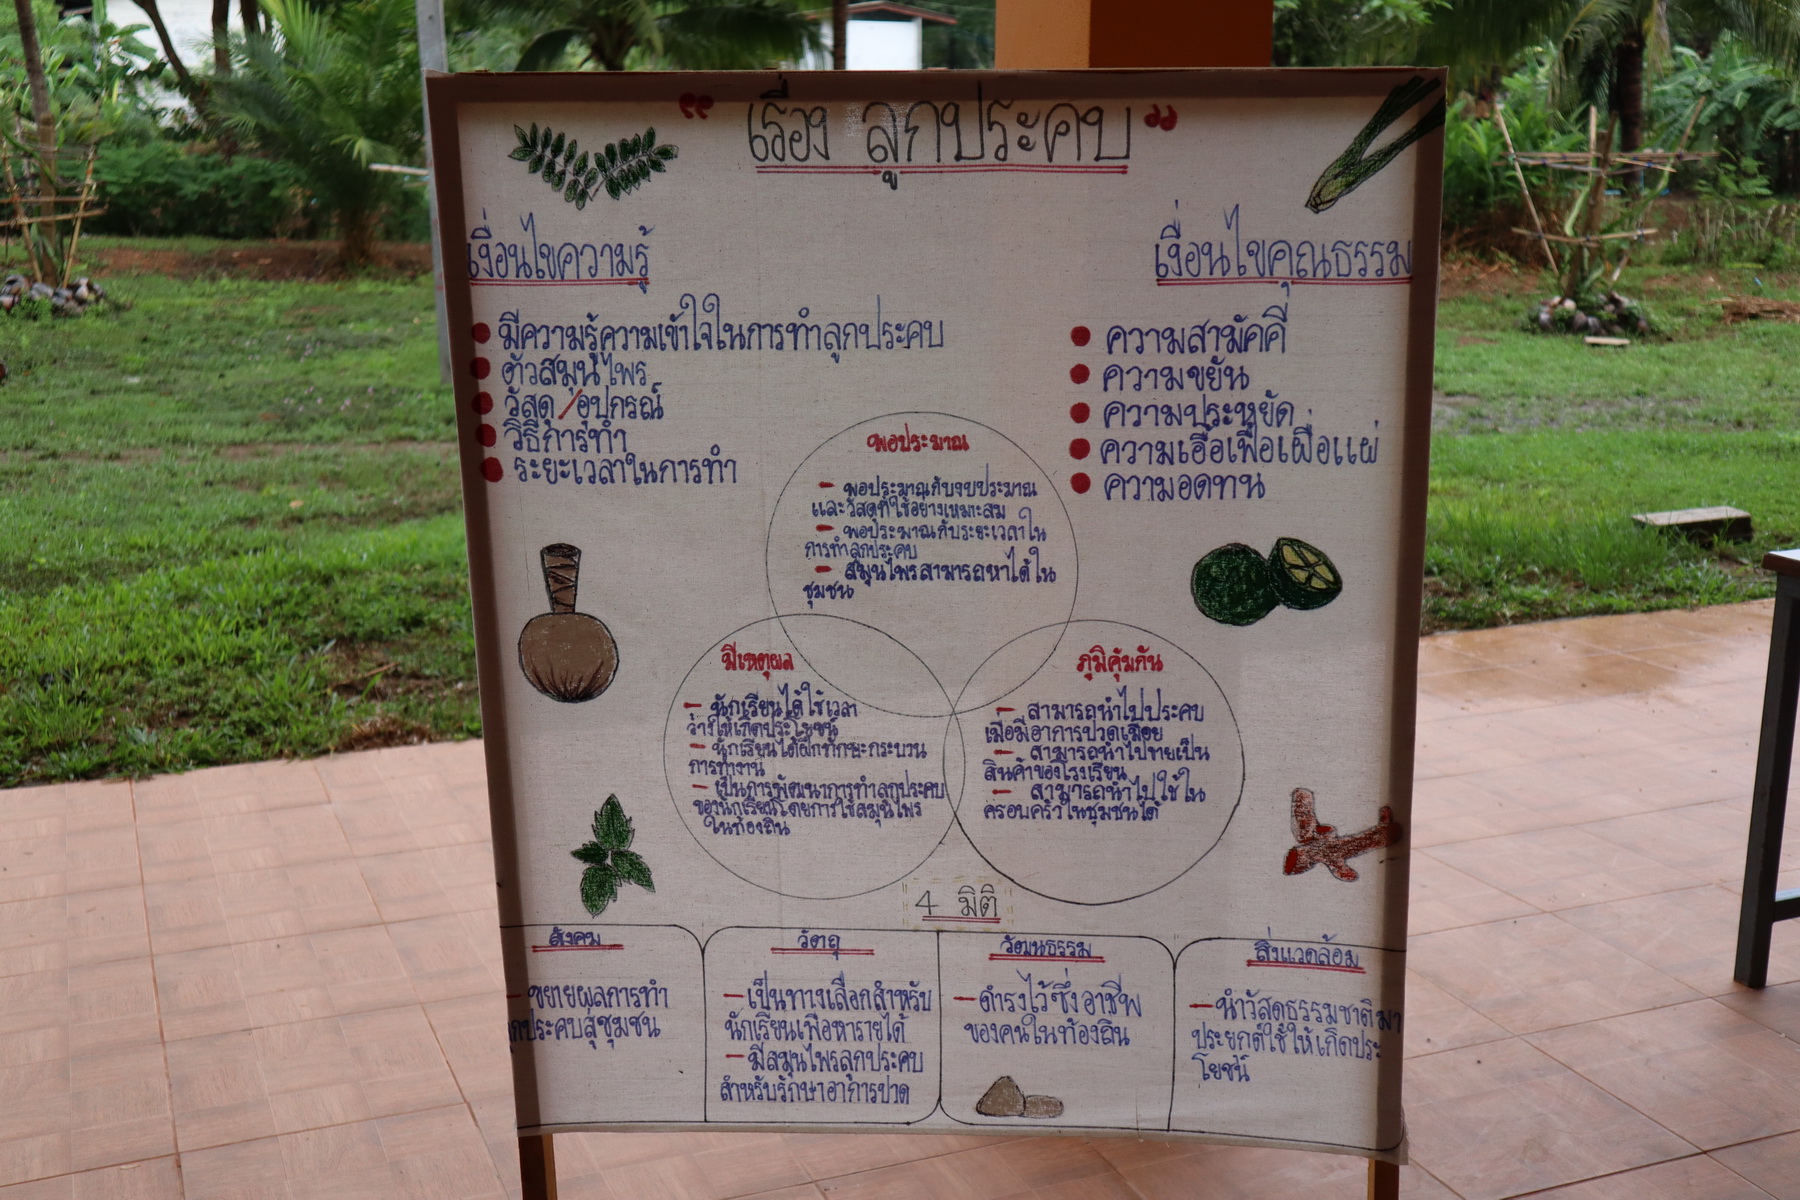 " เรื่อง ลูกประคบ "
เงื่อนไขความรู้
มีความรู้ความเข้าใจในการทำลูกประคบ
ตัวสมุนไพร
วัสดุ/อุปกรณ์
วิธีการทำ
ระยะเวลาในการทำ
เงื่อนไขคุณธรรม
ความสามัคคี
ความขยัน
ความประหยัด
ความเอื้อเฟื้อเผื่อแผ่
ความอดทน
พอประมาณ
- พอประมาณกับงบประมาณ
และวัสดุที่ใช้อย่างเหมาะสม
- พอประมาณกับระยะเวลาใน
การทำลูกประคบ
- สมุนไพรสามารถหาได้ใน
ชุมชน
มีเหตุผล
- นักเรียนได้ใช้เวลา
ว่างให้เกิดประโยชน์
- นักเรียนได้ฝึกทักษะกระบวน
การทำงาน
- เป็นการพัฒนาการทำลูกประคบ
ของนักเรียนโดยการใช้สมุนไพร
ในท้องถิ่น
ภูมิคุ้มกัน
- สามารถนำไปประคบ
เมื่อมีอาการปวดเมื่อย
- สามารถนำไปขายเป็น
สินค้าของโรงเรียน
- สามารถนำไปใช้ใน
ครอบครัวในชุมชนได้
4 มิติ
สังคม
- ขยายผลการทำ
ลูกประคบสู่ชุมชน
วัตถุ
- เป็นทางเลือกสำหรับ
นักเรียนเพื่อหารายได้
- มีสมุนไพรลูกประคบ
สำหรับรักษาอาการปวด
วัฒนธรรม
- ดำรงไว้ซึ่งอาชีพ
ของคนในท้องถิ่น
สิ่งแวดล้อม
- นำวัสดุธรรมชาติมา
ประยุกต์ใช้ให้เกิดประ
โยชน์